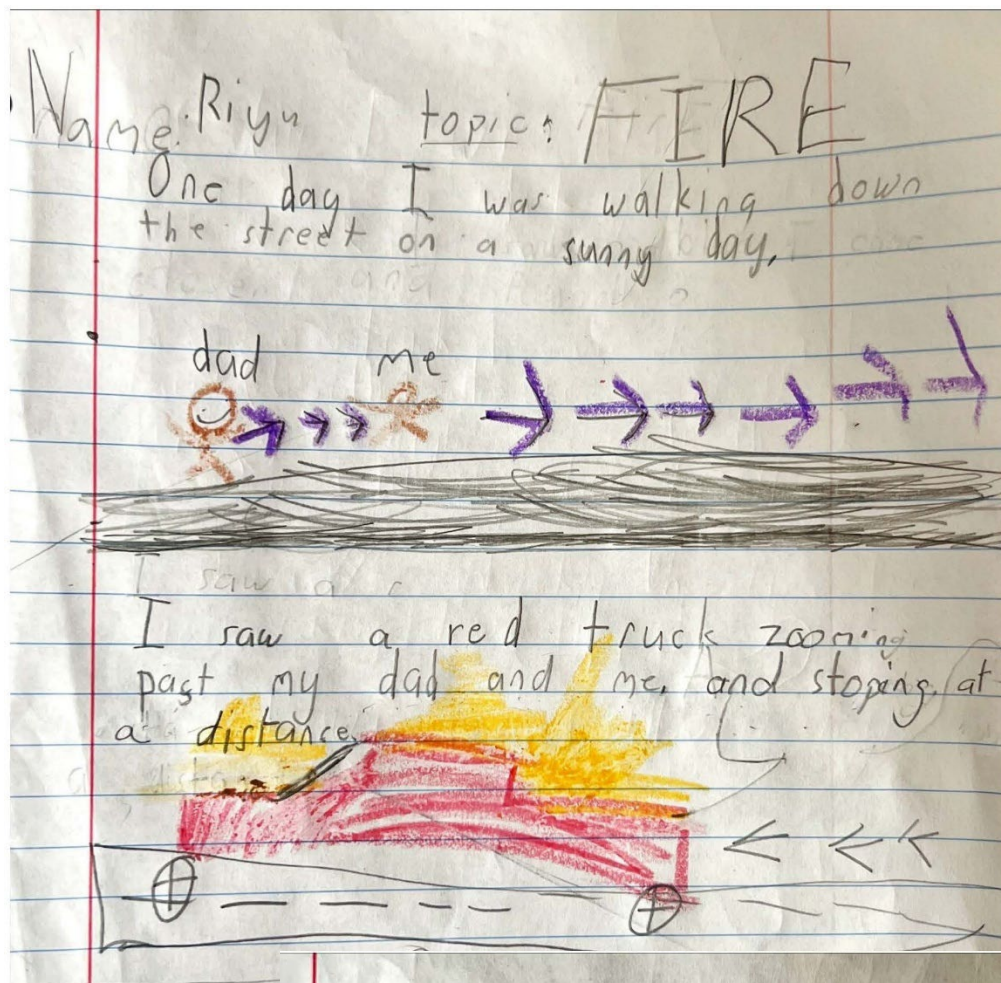 Name: Riyu topic: FIRE
One day I was walking down
the street on a sunny day.
dad me
I saw a
I saw a red truck zooming
past my dad and me, and stoping at
a distance